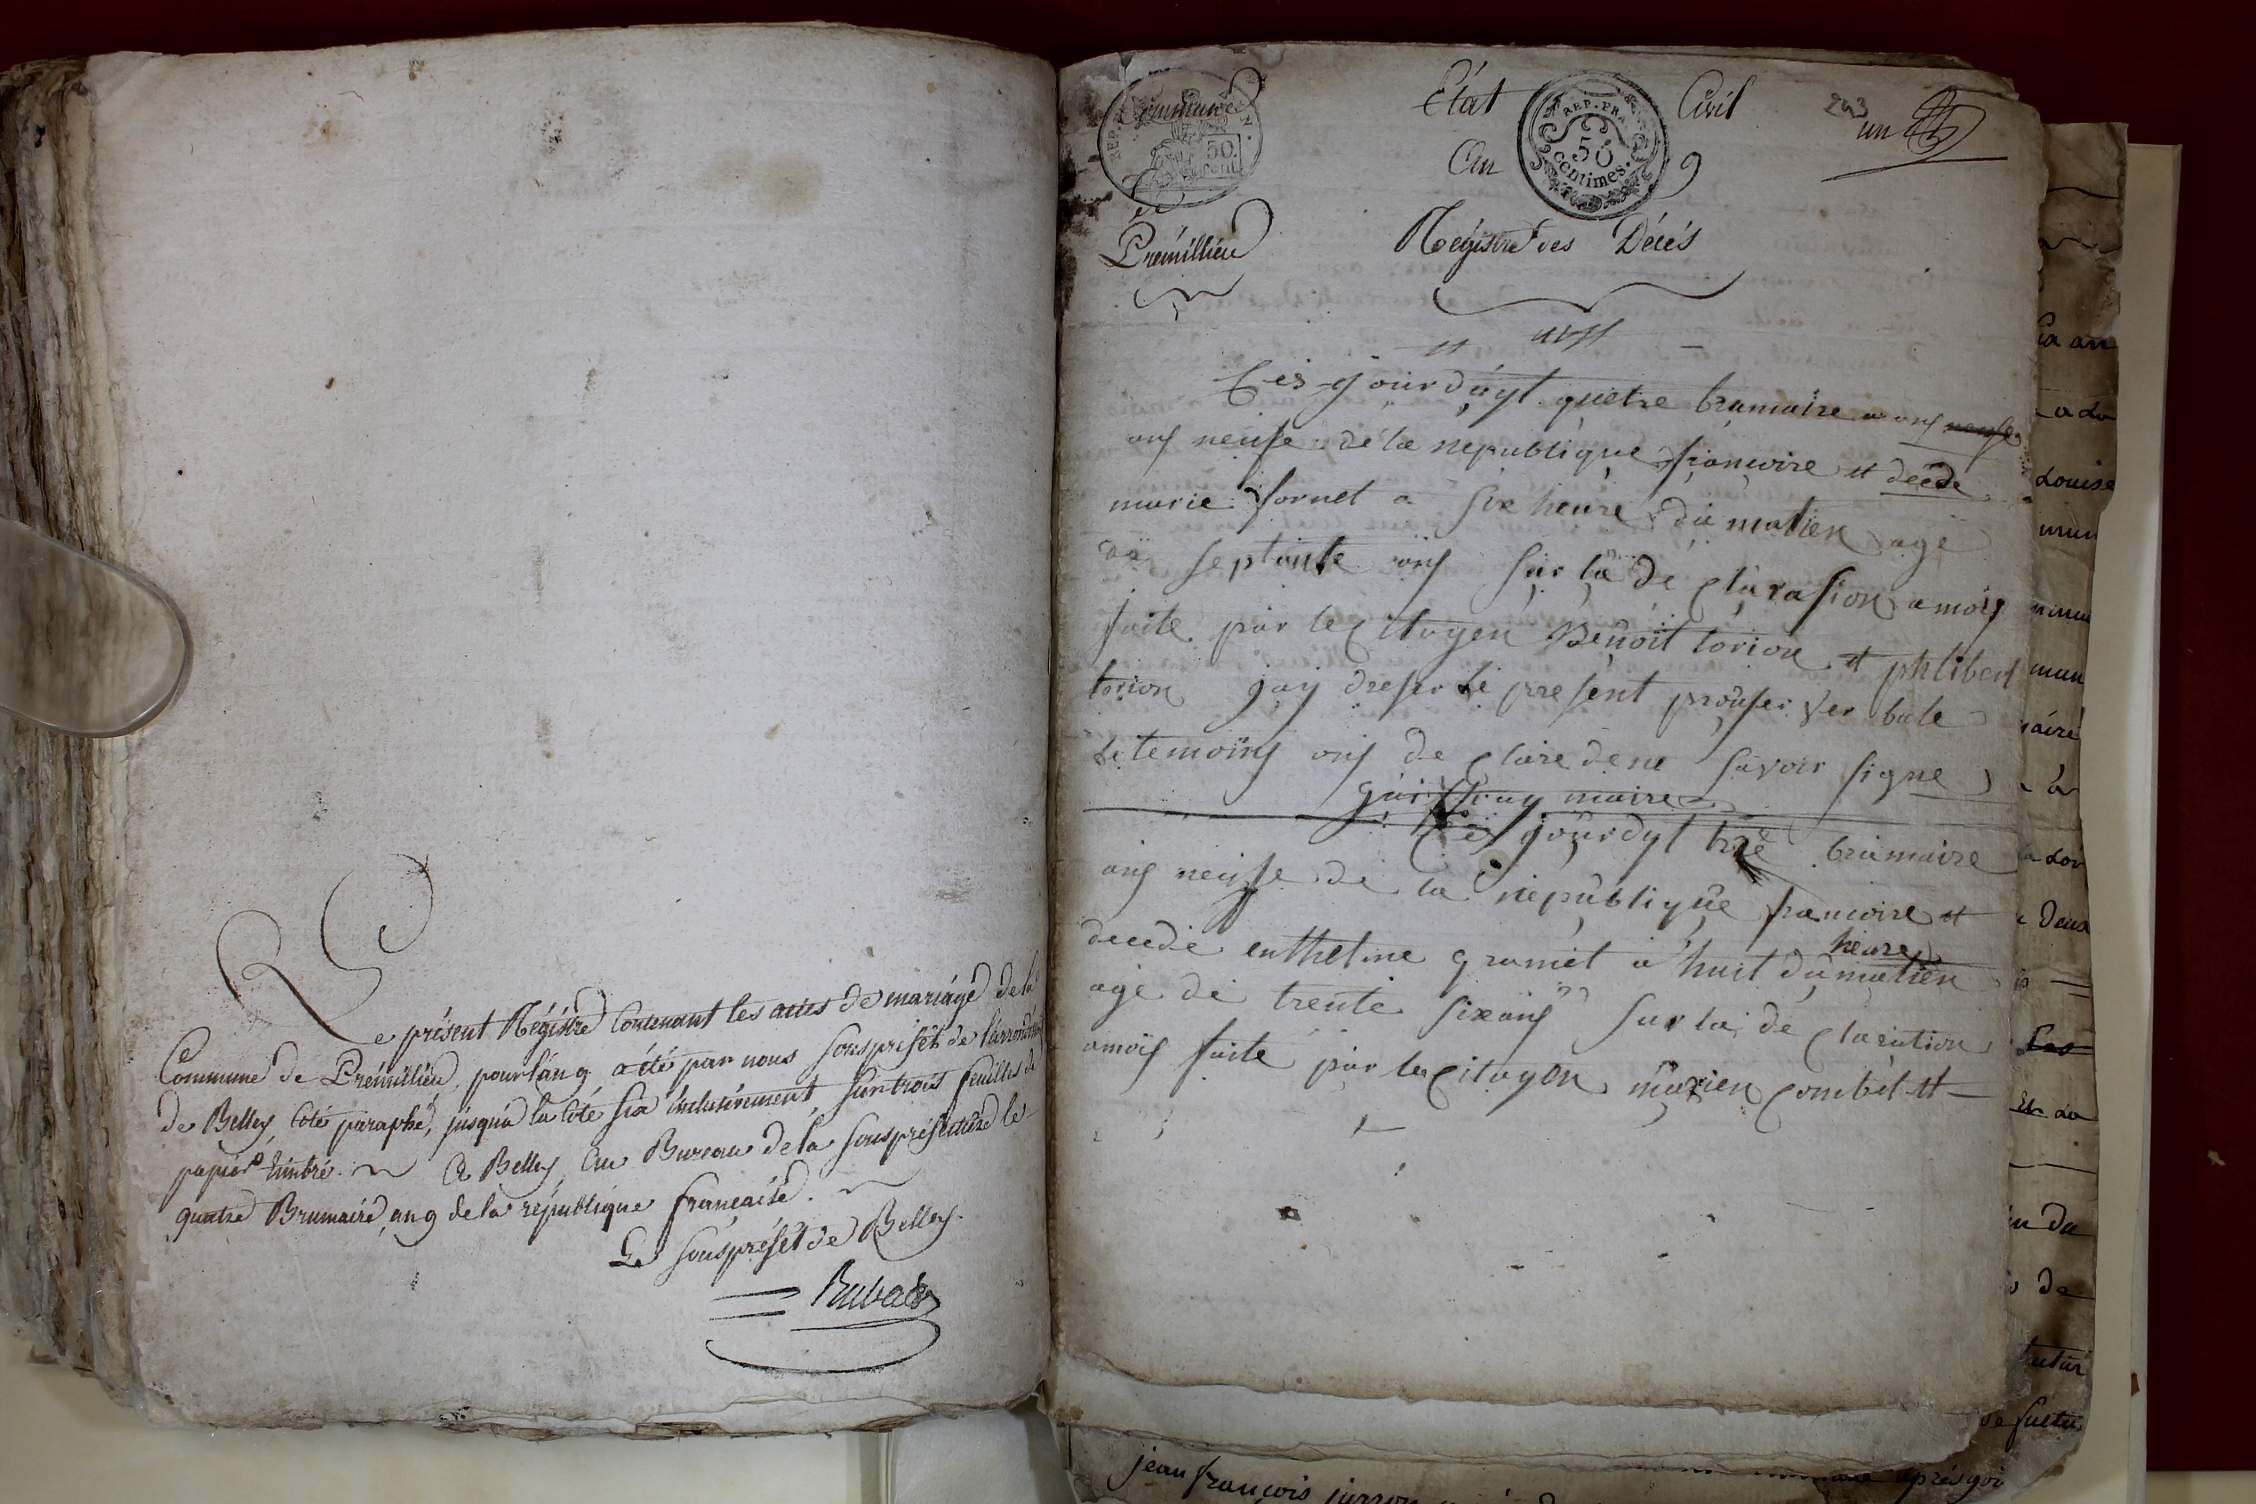 Le présent Régistre Contenant les actes de mariage de la
Commune de Prémillieu, pour l'an 9 a été par nous souspréfêt de l'arrond
de Belley, coté paraphé, jusqu'à la côte six inclusivement sur trois feuilles de
papier timbré. A Belley, au Bureau de la souspréfecture le
quatre Brumaire, an 9 de la république française.
Le souspréfêt de Belley.
REP. FRA.
50
centimes.
50
cent
Commune
de
Prémillieu
Etat Civil
An 9
Régistre des Décés
243
un
Ces jourduyt quetre brumaire ans neufe
ans neufe de la republique francoire et decede
marie fornet a six heure du matien age
septante ans sur la de clarasion a mois
faite par le citoyen Benoit torion et philibert
torion jay dreser le present prouser ver bale
le temoins ons de claire de ne savoir signe
maire
Ce jourdyt brumaire
ans neuffe de la republique francoire et
decede entheline gramet a huit heure du matien
age de trente six ans sur la de claration
a mois faite par le citoyen marien combet et
jean françois